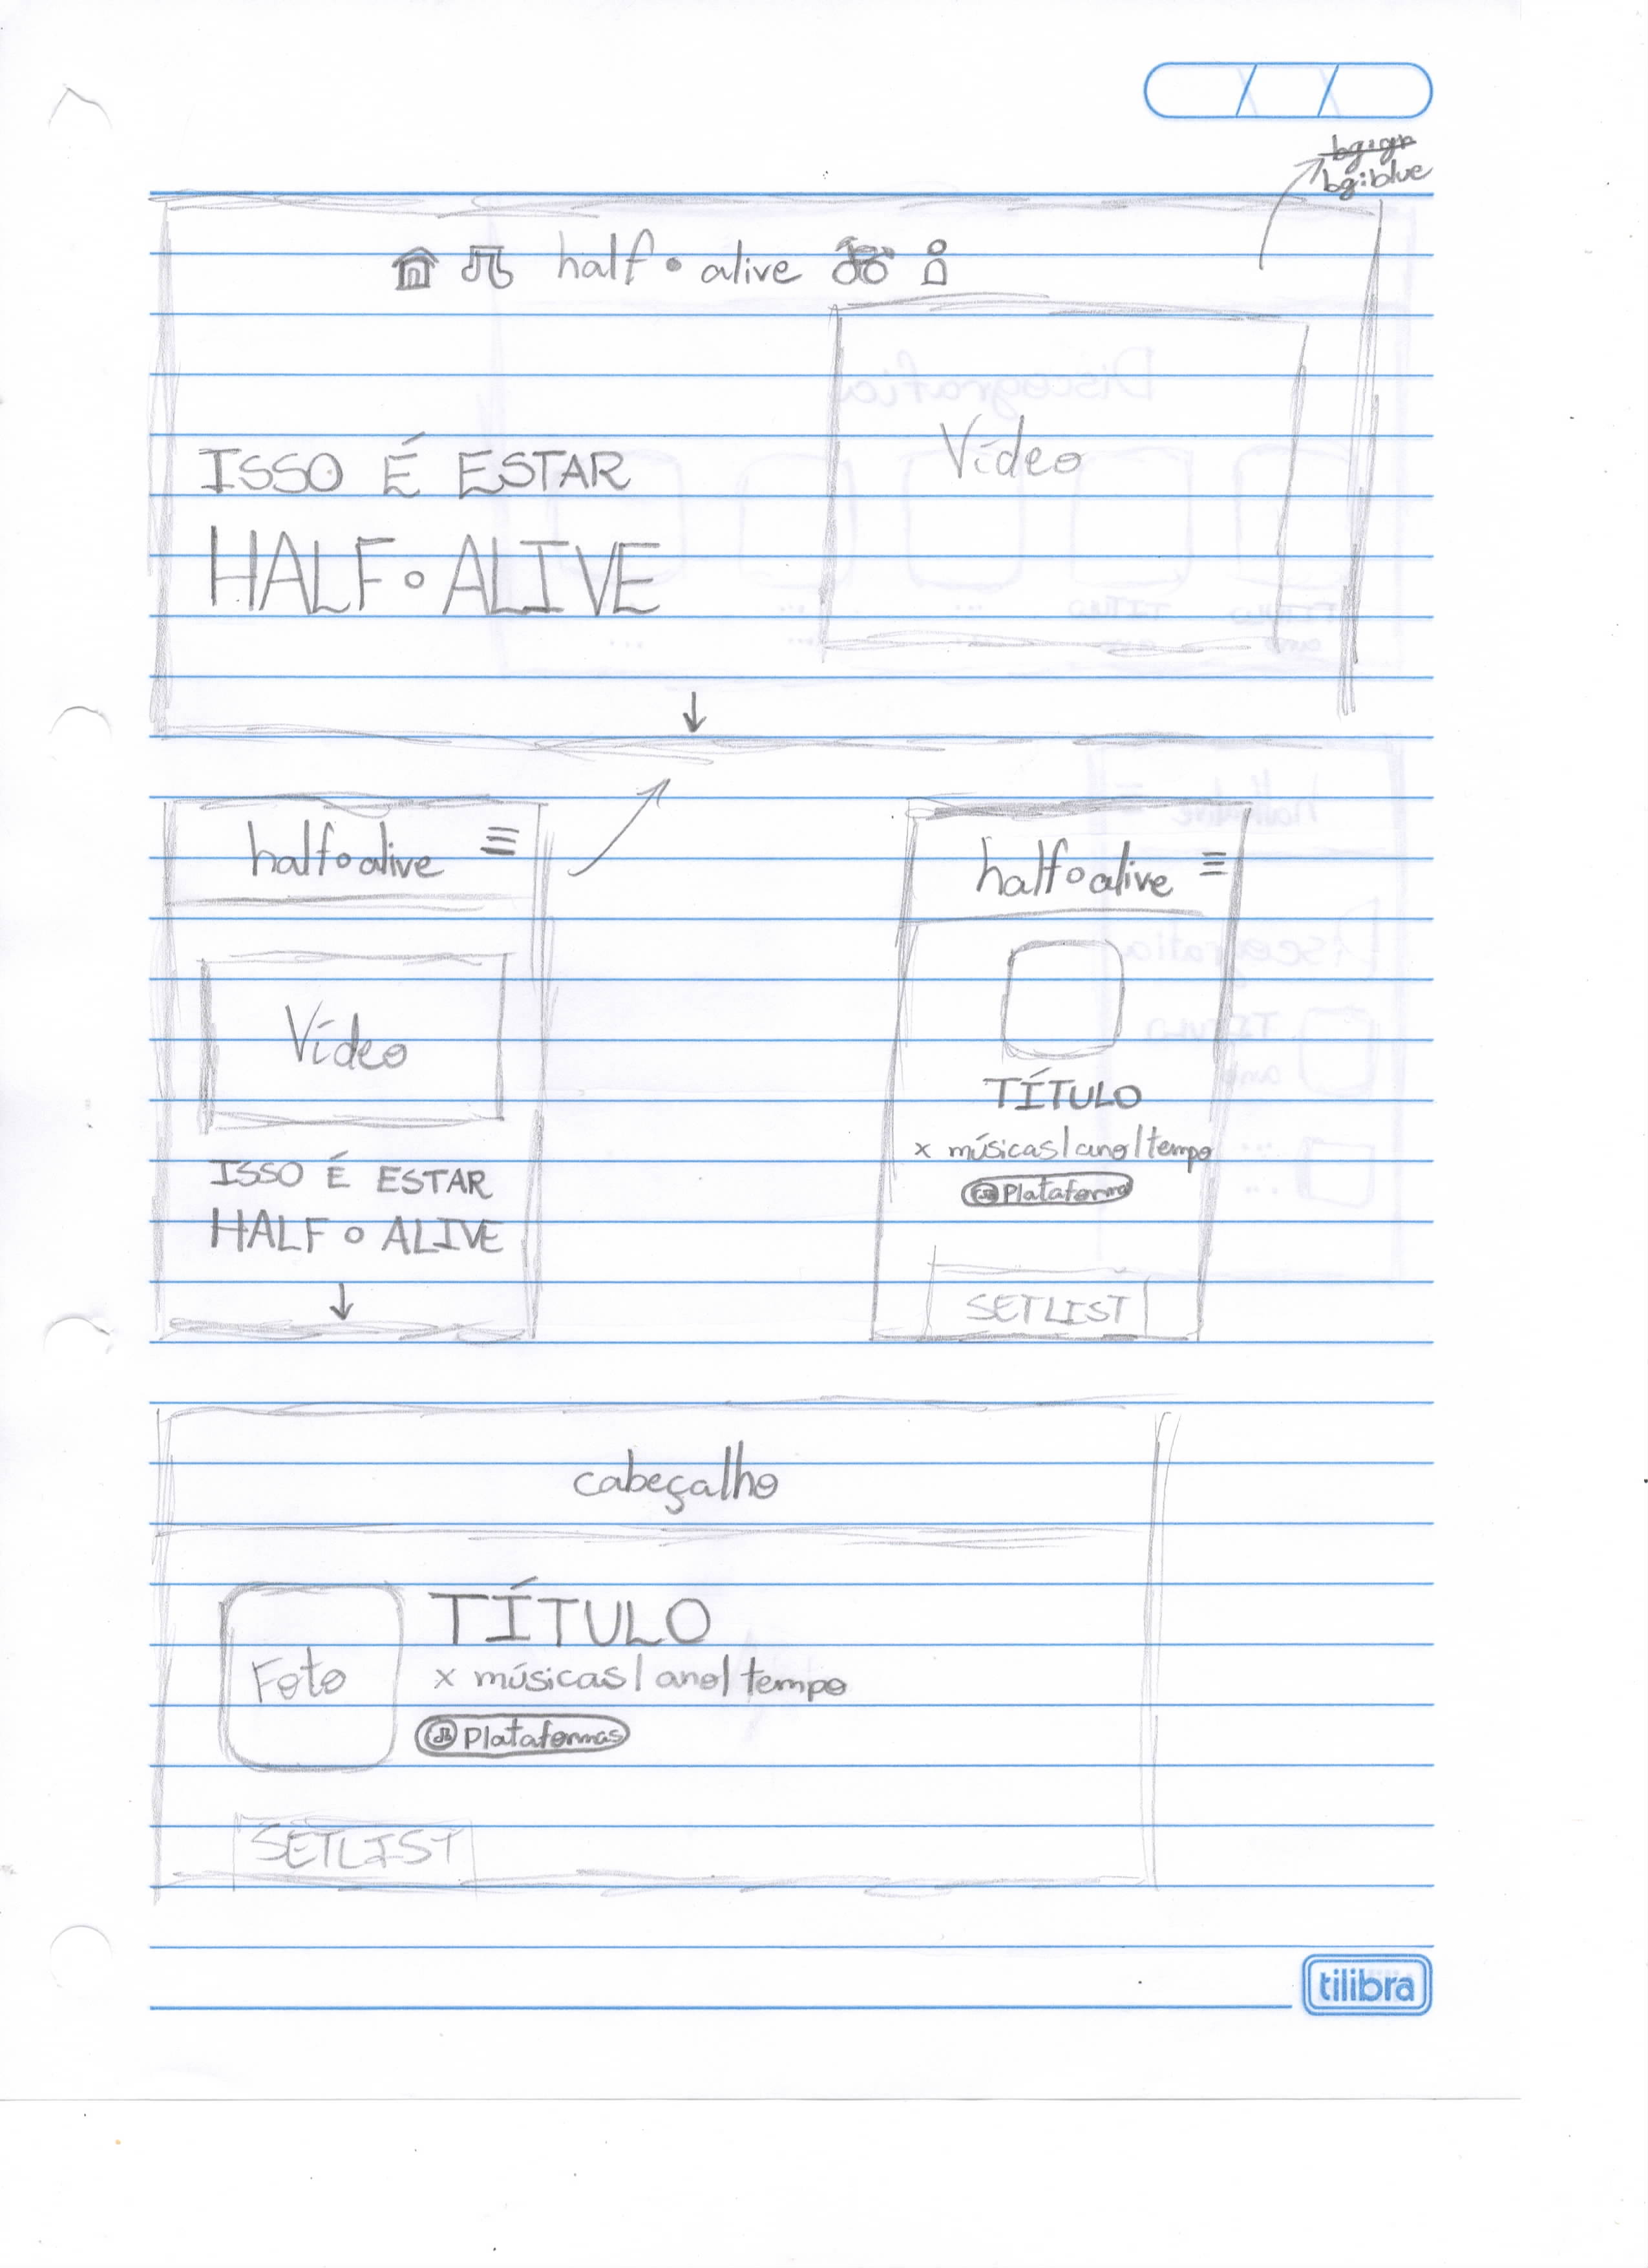 bg:blue
half • alive
Vídeo
ISSO É ESTAR
HALF • ALIVE
half • alive
Vídeo
ISSO É ESTAR
HALF • ALIVE
half • alive
TÍTULO
x músicas | ano | tempo
Plataforma
SETLIST
cabeçalho
Foto
TÍTULO
x músicas | ano | tempo
Plataformas
SETLIST
tilibra